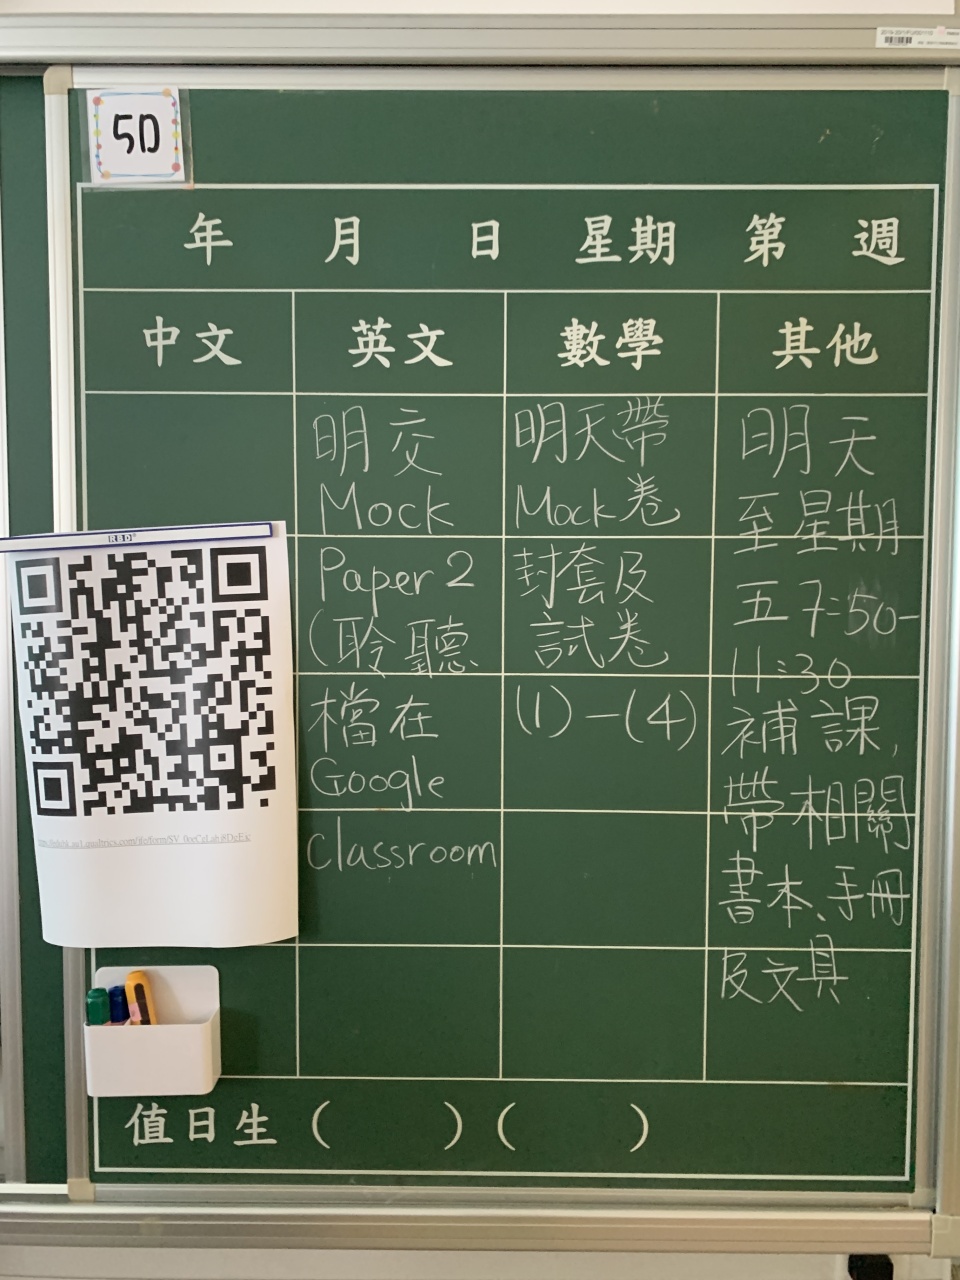 5D
年 月 日 星期 第 週
中文 英文 數學 其他
明交
Mock
Paper 2
(聆聽
檔在
Google
Classroom
明天帶
Mock卷
封套及
試卷
(1)-(4)
明天
至星期
五 7:50-
11:30
補課,
帶相關
書本、手冊
及文具
RBD
值日生 ( ) ( )